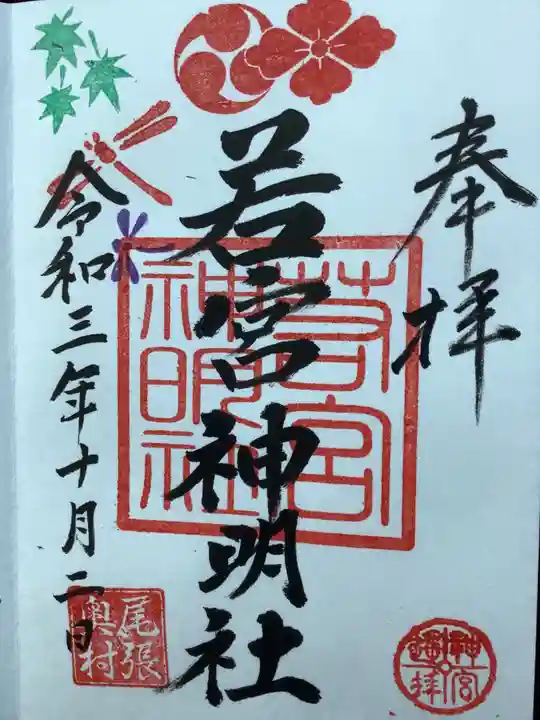 奉拝
若宮神明社
令和三年十月二日
若宮
神明社
尾張
奥村
神宮
遥拝